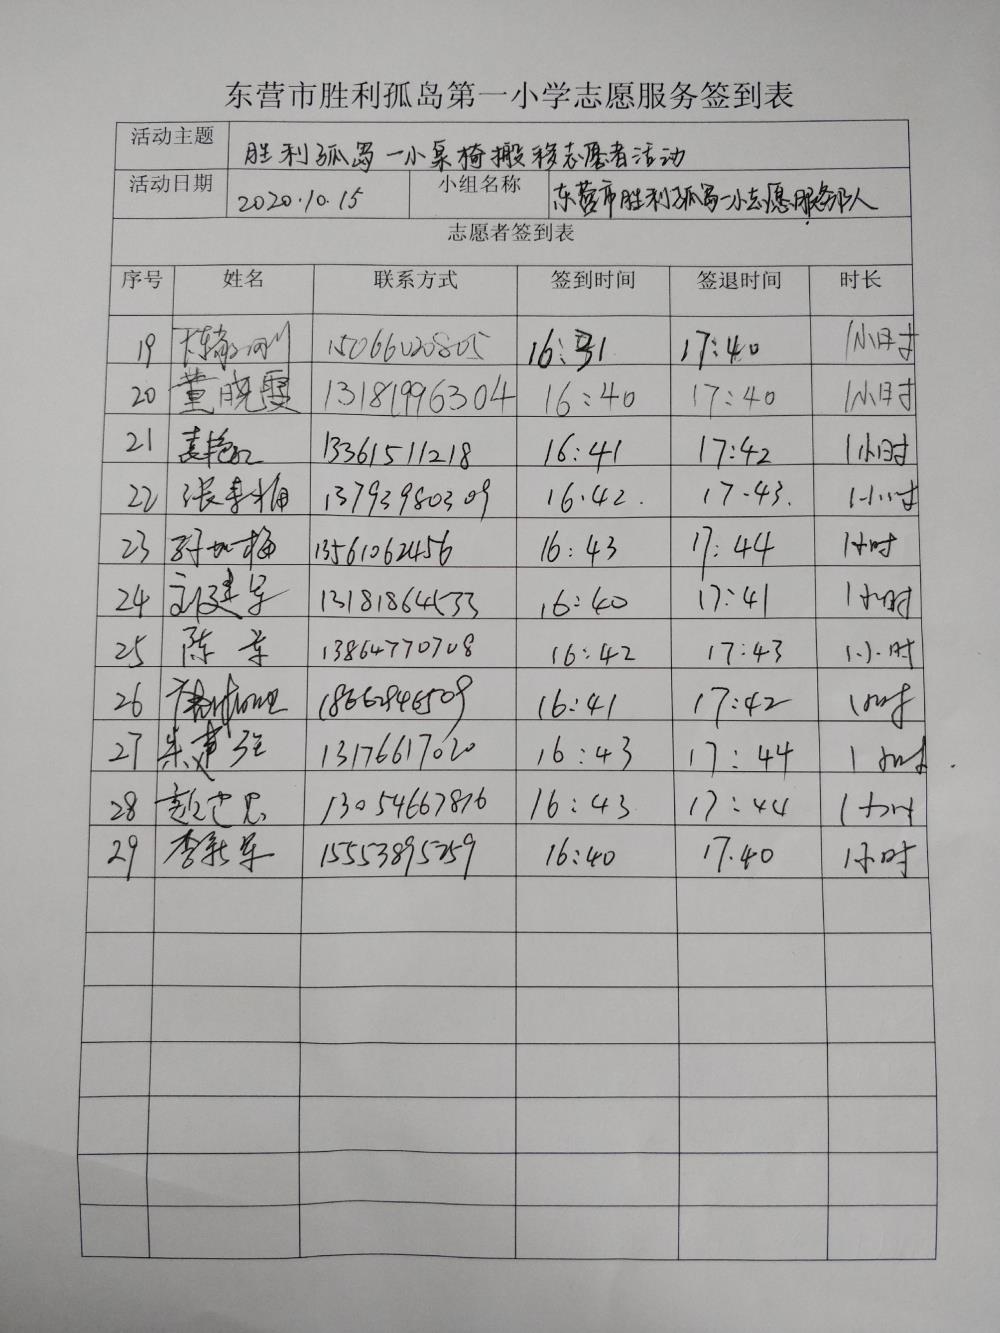 东营市胜利孤岛第一小学志愿服务签到表
活动主题 胜利孤岛一小桌椅搬移志愿者活动
活动日期 2020.10.15 小组名称 东营市胜利孤岛一小志愿服务队人
志愿者签到表
序号 姓名 联系方式 签到时间 签退时间 时长
19 15066020805 16:31 17:40 1小时
20 董晓雯 13181996304 16:40 17:40 1小时
21 袁艳红 13361511218 16:41 17:42 1小时
22 张春梅 13793980309 16.42. 17.43. 1小时
23 13561062456 16:43 17:44 1小时
24 刘建军 13181864533 16:40 17:41 1小时
25 陈军 13864770708 16:42 17:43 1小时
26 18662846509 16:41 17:42 1小时
27 朱建强 13176617020 16:43 17:44 1小时
28 赵忠 13054667816 16:43 17:44 1小时
29 李新军 15553895259 16:40 17.40 1小时